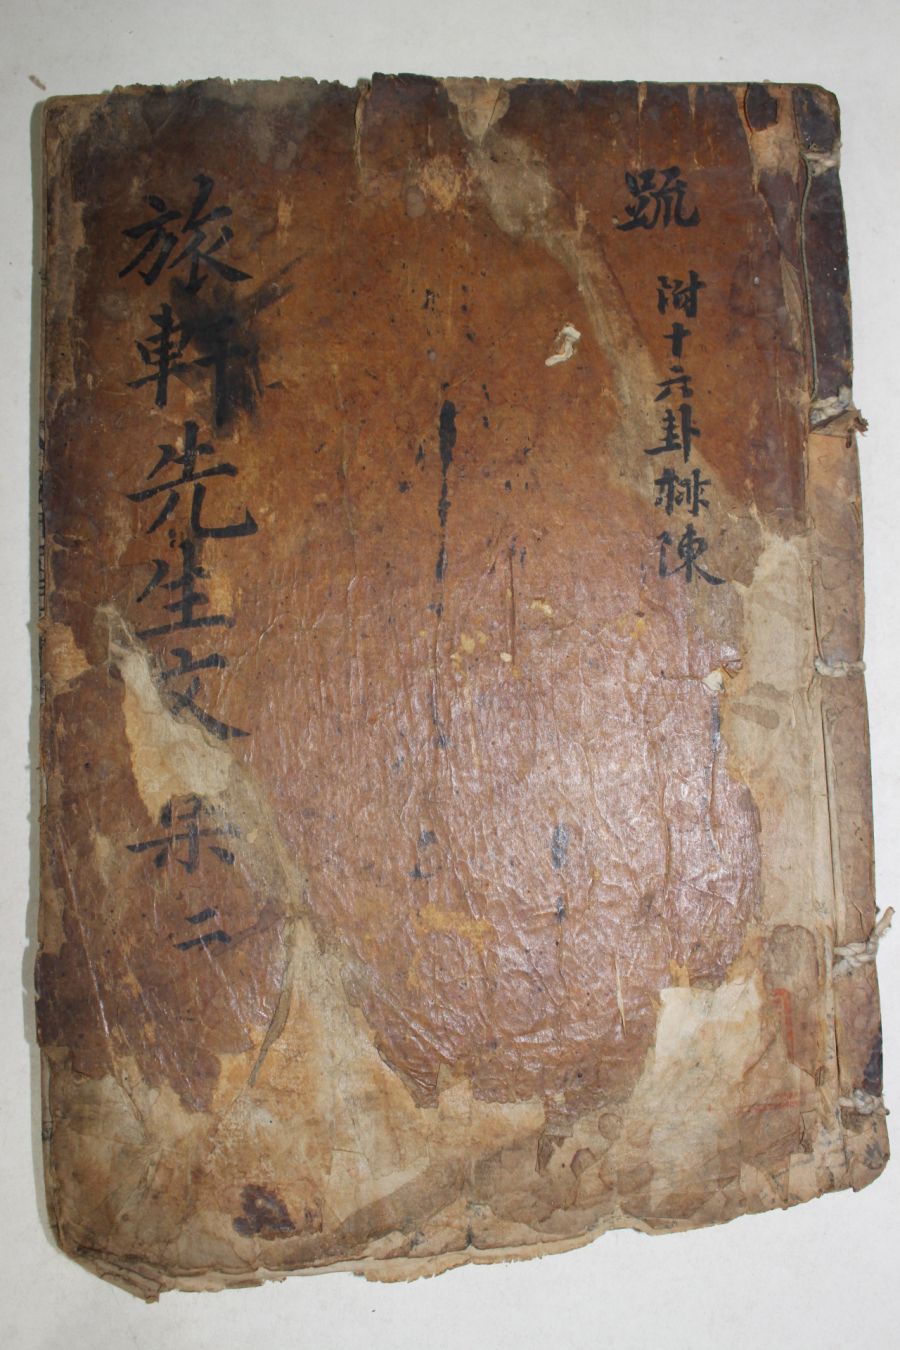 疏
附十六卦排陳
旅軒先生文集二